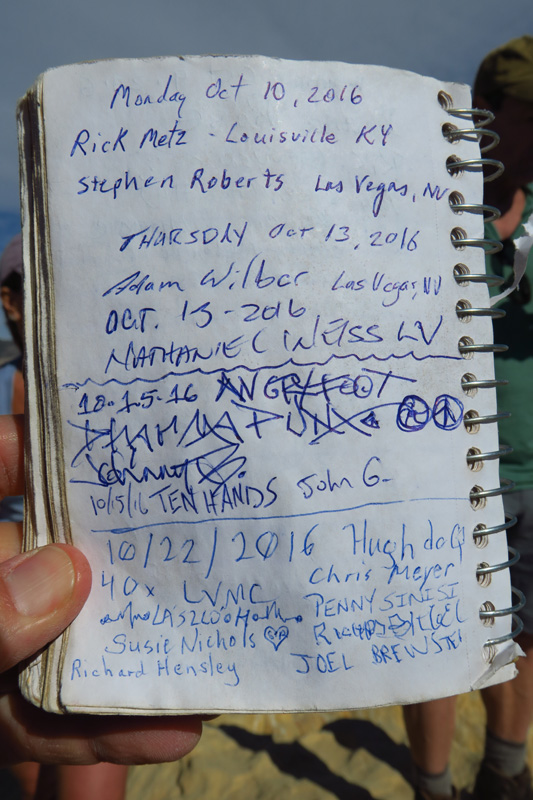 Monday Oct 10, 2016
Rick Metz - Louisville KY
Stephen Roberts Las Vegas, NV
THURSDAY Oct 13, 2016
Adam Wilber Las Vegas, NV
OCT. 15-2016
NATHANIEL WEISS LV
10.15.16
10/15/16 TEN HANDS John G.
10/22/2016 Hugh
40x LVMC Chris Meyer
PENNY SINISI
Susie Nichols
Richard Hensley JOEL BREWSKI